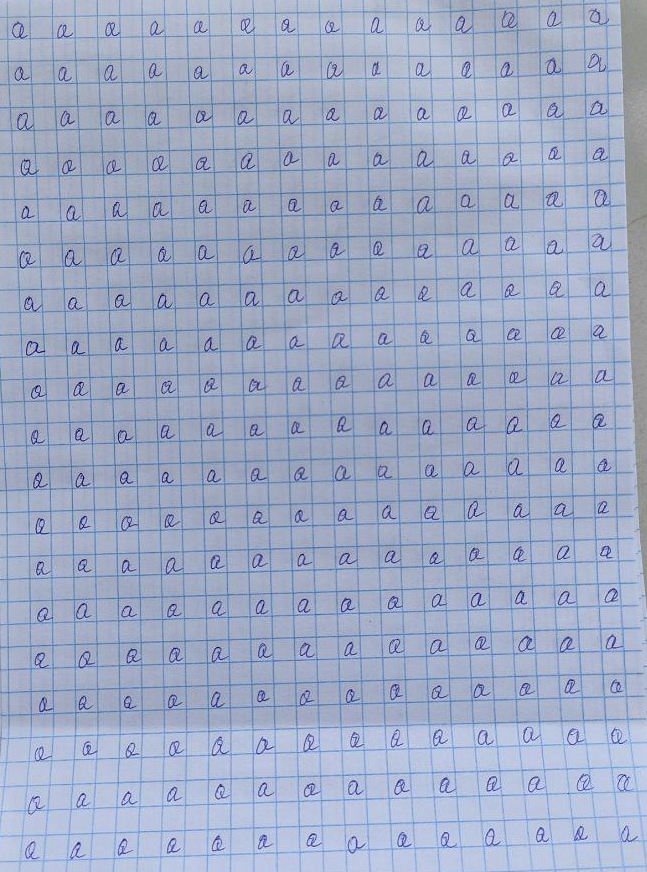 a a a a a a a a a a a a a a
a a a a a a a a a a a a a a
a a a a a a a a a a a a a a
a a a a a a a a a a a a a a
a a a a a a a a a a a a a a
a a a a a a a a a a a a a a
a a a a a a a a a a a a a a
a a a a a a a a a a a a a a
a a a a a a a a a a a a a a
a a a a a a a a a a a a a a
a a a a a a a a a a a a a a
a a a a a a a a a a a a a a
a a a a a a a a a a a a a a
a a a a a a a a a a a a a a
a a a a a a a a a a a a a a
a a a a a a a a a a a a a a
a a a a a a a a a a a a a a
a a a a a a a a a a a a a a
a a a a a a a a a a a a a a